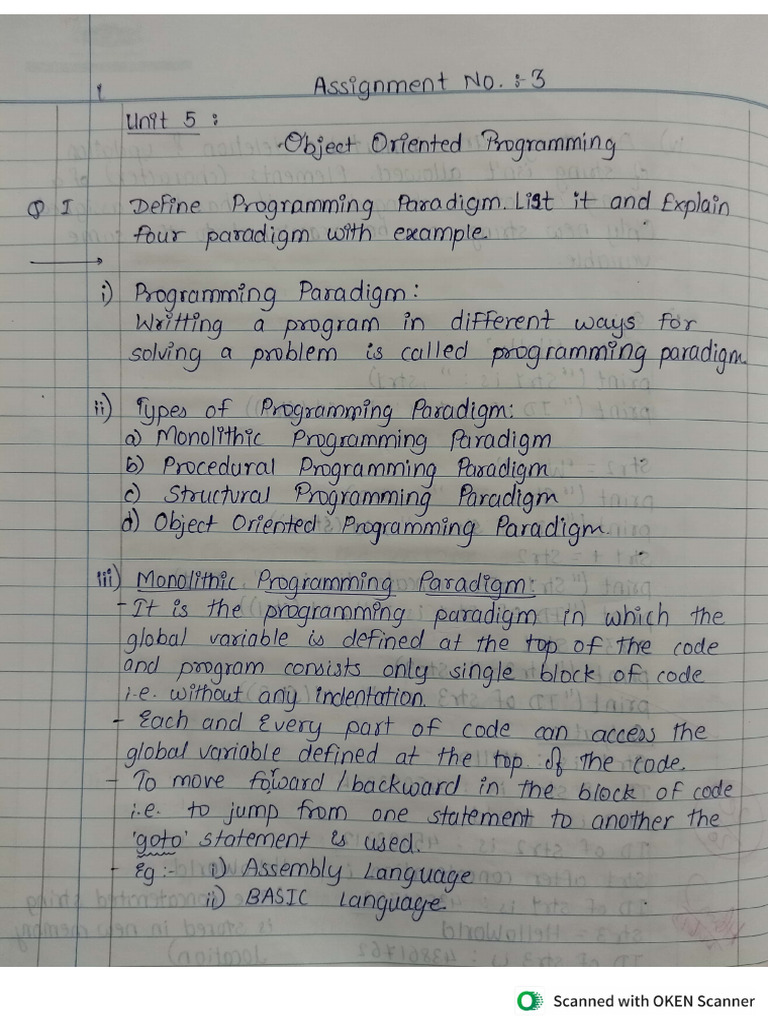 Assignment No. :- 3
Unit 5 :
Object Oriented Programming
Q I Define Programming Paradigm. List it and Explain
four paradigm with example.
i) Programming Paradigm :
Writting a program in different ways for
solving a problem is called programming paradigm.
ii) Types of Programming Paradigm:
a) Monolithic Programming Paradigm
b) Procedural Programming Paradigm
c) Structural Programming Paradigm
d) Object Oriented Programming Paradigm.
iii) Monolithic Programming Paradigm:
- It is the programming paradigm in which the
global variable is defined at the top of the code
and program consists only single block of code
i.e. without any indentation.
- Each and Every part of code can access the
global variable defined at the top of the code.
- To move foward / backward in the block of code
i.e. to jump from one statement to another the
'goto' statement is used.
- Eg :- i) Assembly Language
ii) BASIC Language.
Scanned with OKEN Scanner